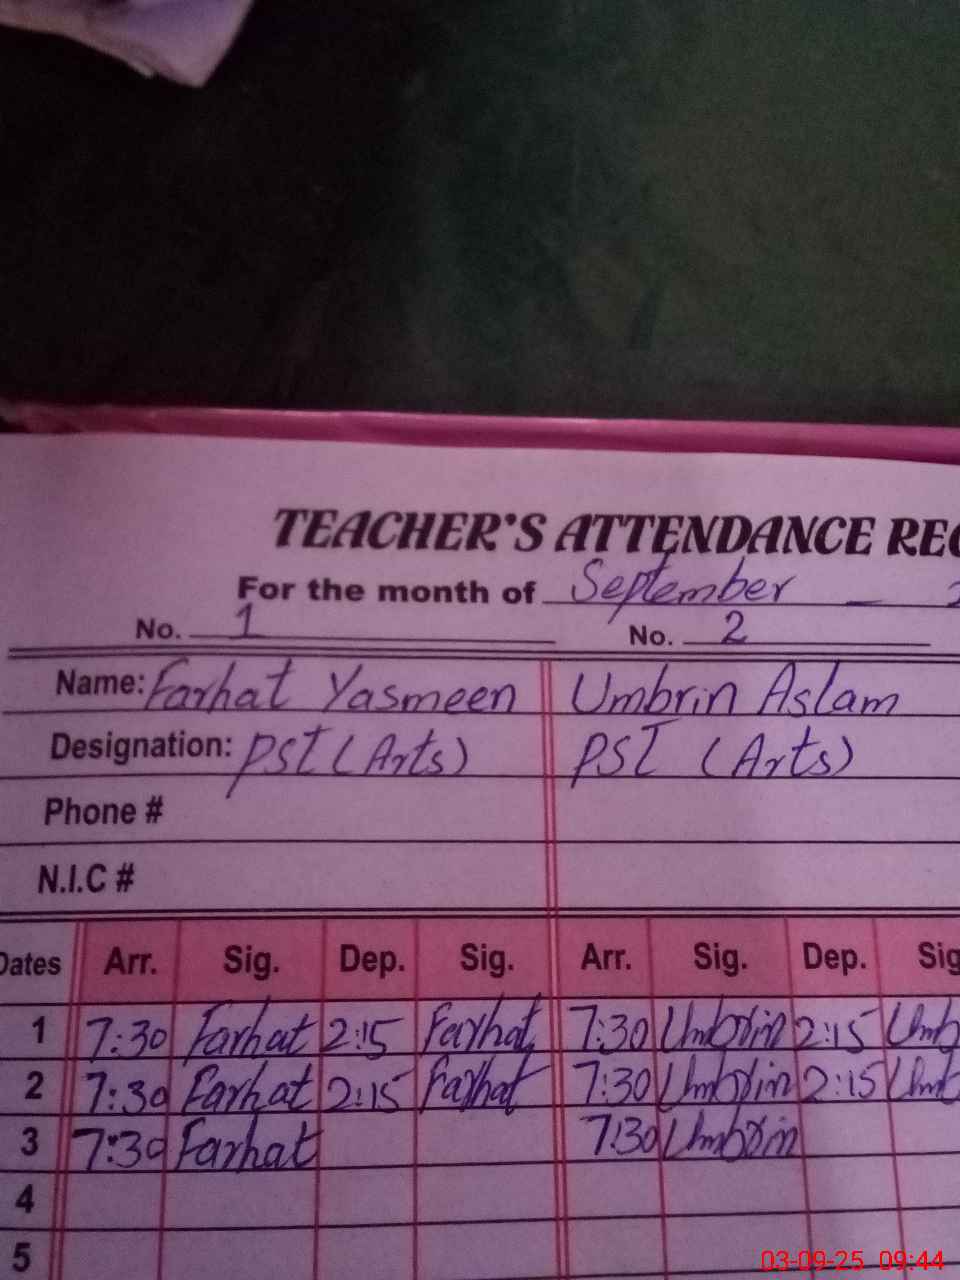 TEACHER'S ATTENDANCE REC
For the month of September
No. 1 No. 2
Name: Farhat Yasmeen Umbrin Aslam
Designation: PST (Arts) PST (Arts)
Phone #
N.I.C #
Dates Arr. Sig. Dep. Sig. Arr. Sig. Dep. Sig
1 7:30 Farhat 2:15 Farhat 7:30 Umbrin 2:15 Umb
2 7:30 Farhat 2:15 Farhat 7:30 Umbrin 2:15 Umb
3 7:30 Farhat 7:30 Umbrin
4
5
03-09-25 09:44